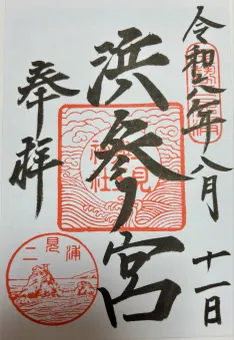 令和 年八月
十一日
浜参宮
奉拝
二見浦